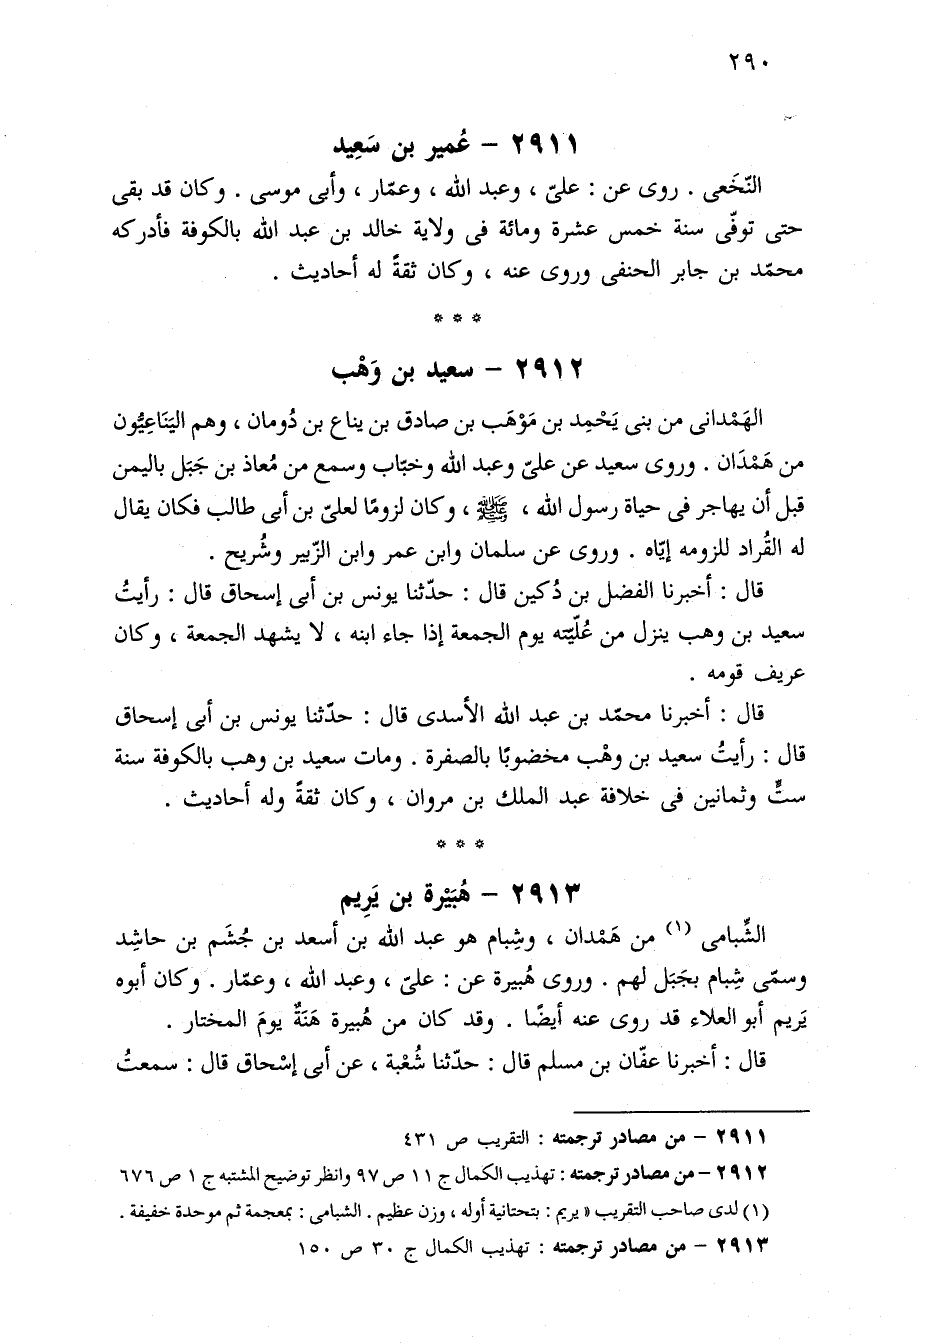 ٢٩٠
٢٩١١ – عُمير بن سَعِيد
النّخَعى . روى عن : علىّ ، وعبد الله ، وعمّار ، وأبى موسى . وكان قد بقى
حتى توفّى سنة خمس عشرة ومائة فى ولاية خالد بن عبد الله بالكوفة فأدركه
محمّد بن جابر الحنفى وروى عنه ، وكان ثقةً له أحاديث .
* * *
٢٩١٢ – سعيد بن وَهْب
الهَمْدانى من بنى يَحْمِد بن مَوْهَب بن صادق بن يناع بن دُومان ، وهم اليَنَاعِيُّون
من هَمْدَان . وروى سعيد عن علىّ وعبد الله وخبّاب وسمع من مُعاذ بن جَبَل باليمن
قبل أن يهاجر فى حياة رسول الله ، ﷺ ، وكان لزومًا لعلىّ بن أبى طالب فكان يقال
له القُراد للزومه إيّاه . وروى عن سلمان وابن عمر وابن الزّبير وشُريح .
قال : أخبرنا الفضل بن دُكين قال : حدّثنا يونس بن أبى إسحاق قال : رأيتُ
سعيد بن وهب ينزل من عُلّيّته يوم الجمعة إذا جاء ابنه ، لا يشهد الجمعة ، وكان
عريف قومه .
قال : أخبرنا محمّد بن عبد الله الأسدى قال : حدّثنا يونس بن أبى إسحاق
قال : رأيتُ سعيد بن وهْب مخضوبًا بالصفرة . ومات سعيد بن وهب بالكوفة سنة
ستٍّ وثمانين فى خلافة عبد الملك بن مروان ، وكان ثقةً وله أحاديث .
* * *
٢٩١٣ – هُبَيْرة بن يَرِيم
الشِّبامى (١) من هَمْدان ، وشِبام هو عبد الله بن أسعد بن جُشَم بن حاشد
وسمّى شِبام بجَبَل لهم . وروى هُبيرة عن : علىّ ، وعبد الله ، وعمّار . وكان أبوه
يَريم أبو العلاء قد روى عنه أيضًا . وقد كان من هُبيرة هَنَةٌ يومَ المختار .
قال : أخبرنا عفّان بن مسلم قال : حدّثنا شُعْبة ، عن أبى إسْحاق قال : سمعتُ
٢٩١١ – من مصادر ترجمته : التقريب ص ٤٣١
٢٩١٢ – من مصادر ترجمته : تهذيب الكمال ج ١١ ص ٩٧ وانظر توضيح المشتبه ج ١ ص ٦٧٦
(١) لدى صاحب التقريب « يريم : بتحتانية أوله ، وزن عظيم . الشبامى : بمعجمة ثم موحدة خفيفة .
٢٩١٣ – من مصادر ترجمته : تهذيب الكمال ج ٣٠ ص ١٥٠